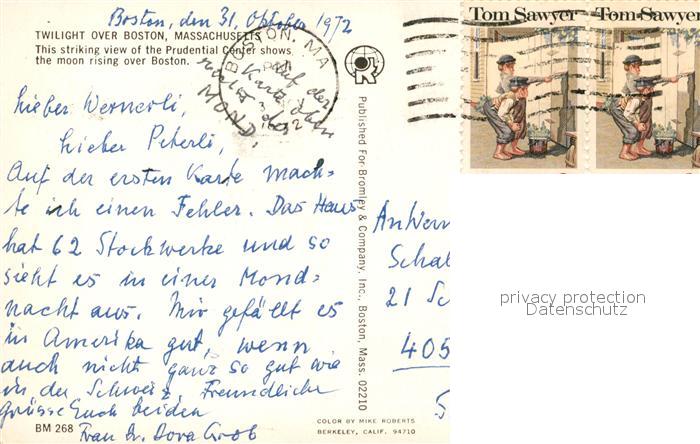 Boston, den 31. Oktober 1972
TWILIGHT OVER BOSTON, MASSACHUSETTS
This striking view of the Prudential Center shows
the moon rising over Boston.
BOSTON, MA
Auf der
Karte oben
MOND.
Lieber Wernerli,
Lieber Peterli,
Auf der ersten Karte mach-
te ich einen Fehler. Das Haus
hat 62 Stockwerke und so
sieht es in einer Mond-
nacht aus. Mir gefällt es
in Amerika gut, wenn
auch nicht ganz so gut wie
in der Schweiz. Freundliche
Grüsse Euch beiden
Frau Dora Grob
BM 268
Published For Bromley & Company, Inc., Boston, Mass. 02210
COLOR BY MIKE ROBERTS
BERKELEY, CALIF. 94710
Tom Sawyer
Tom Sawyer
Schal
21 Sc
405
privacy protection
Datenschutz